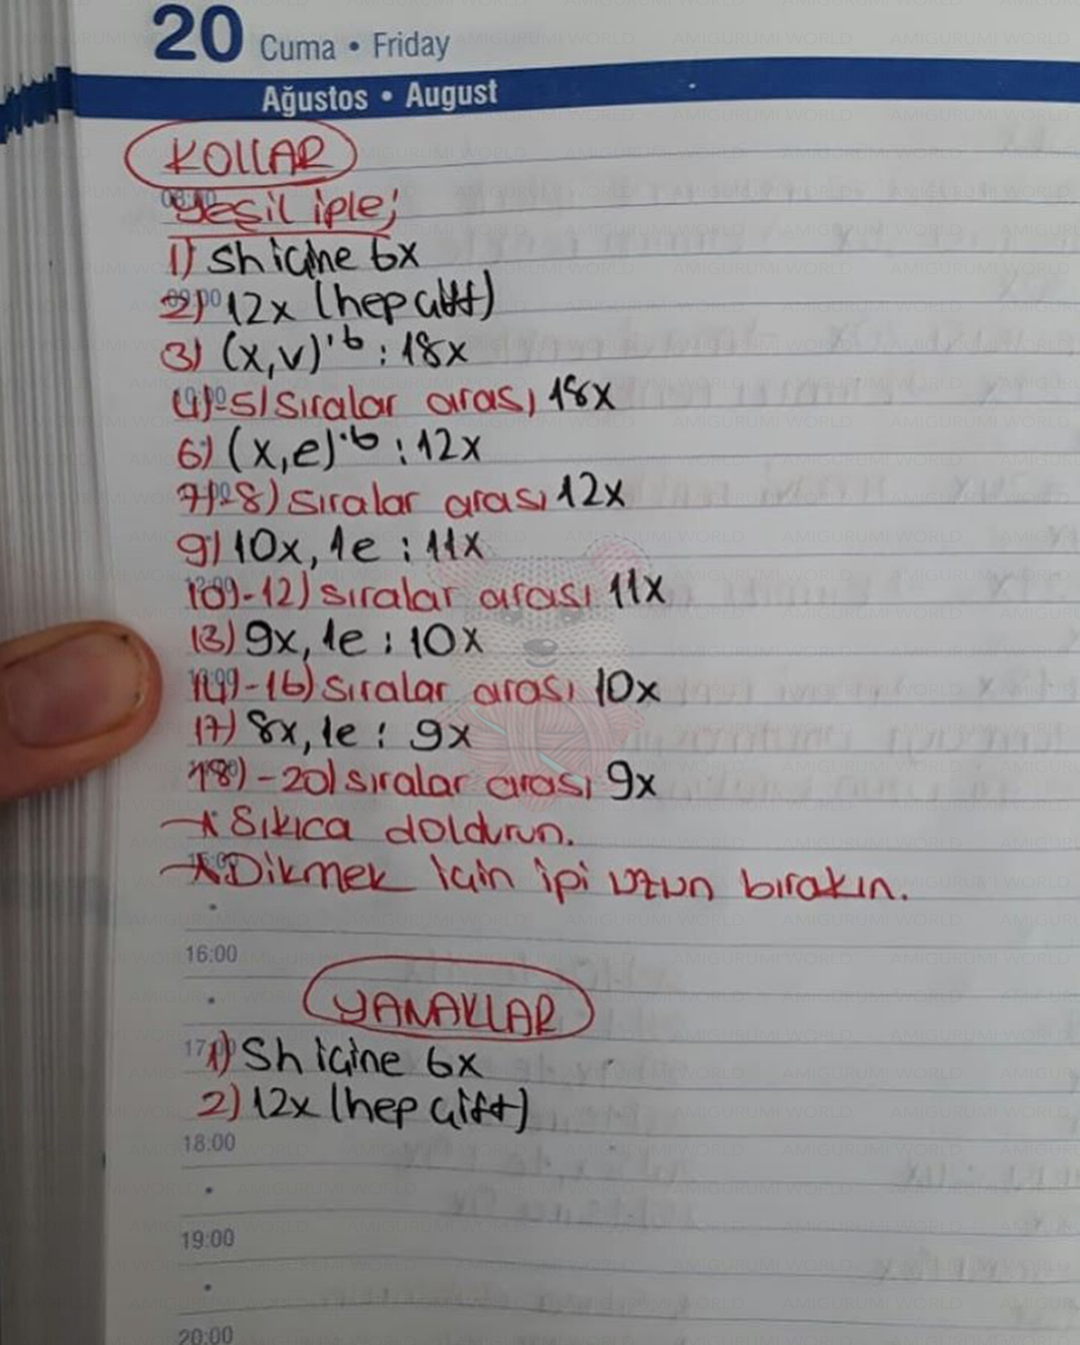 20 Cuma • Friday
Ağustos • August
KOLLAR
Yeşil iple;
1) Sh içine 6x
2) 12x (hep çift)
3) (x,v)'6 : 18x
4)-5) sıralar arası 18x
6) (x,e)·6 : 12x
7)-8) sıralar arası 12x
9) 10x, 1e : 11x
10)-12) sıralar arası 11x
13) 9x, 1e : 10x
14)-16) sıralar arası 10x
17) 8x, 1e : 9x
18)-20) sıralar arası 9x
Sıkıca doldurun.
Dikmek için ipi uzun bırakın.
16:00
YANAKLAR
17:00
1) Sh içine 6x
2) 12x (hep çift)
18:00
19:00
20:00